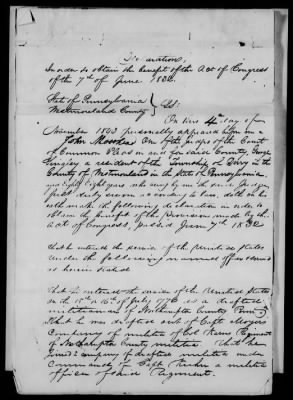 Declaration.
In order to obtain the benefit of the Act of Congress
of the 7th of June 1832.
State of Pennsylvania }
Westmoreland County } SS:
On this 4th day of
November 1833 personally appeared before me
John Moorhead One of the judges of the Court
of Common Pleas in and for said County, George
a resident of the Township of Derry in the
County of Westmoreland in the State of Pennsylvania
aged Eighty Eight years, who being first
duly sworn according to law, doth on his
oath make the following declaration in order to
obtain the benefit of the Provision made by the
Act of Congress, passed June 7th 1832
That he entered the service of the United States
under the following named officers & served
as herein stated
That he entered the service of the United States
on the 15th or 16th of July 1776 as a drafted
militiaman of Northampton County Penna
That he was drafted out of Capt
Company of militia of Col. Regiment
of Northampton County militia. That he
joined a company of drafted militia under
command of Capt a militia
officer of said Regiment.